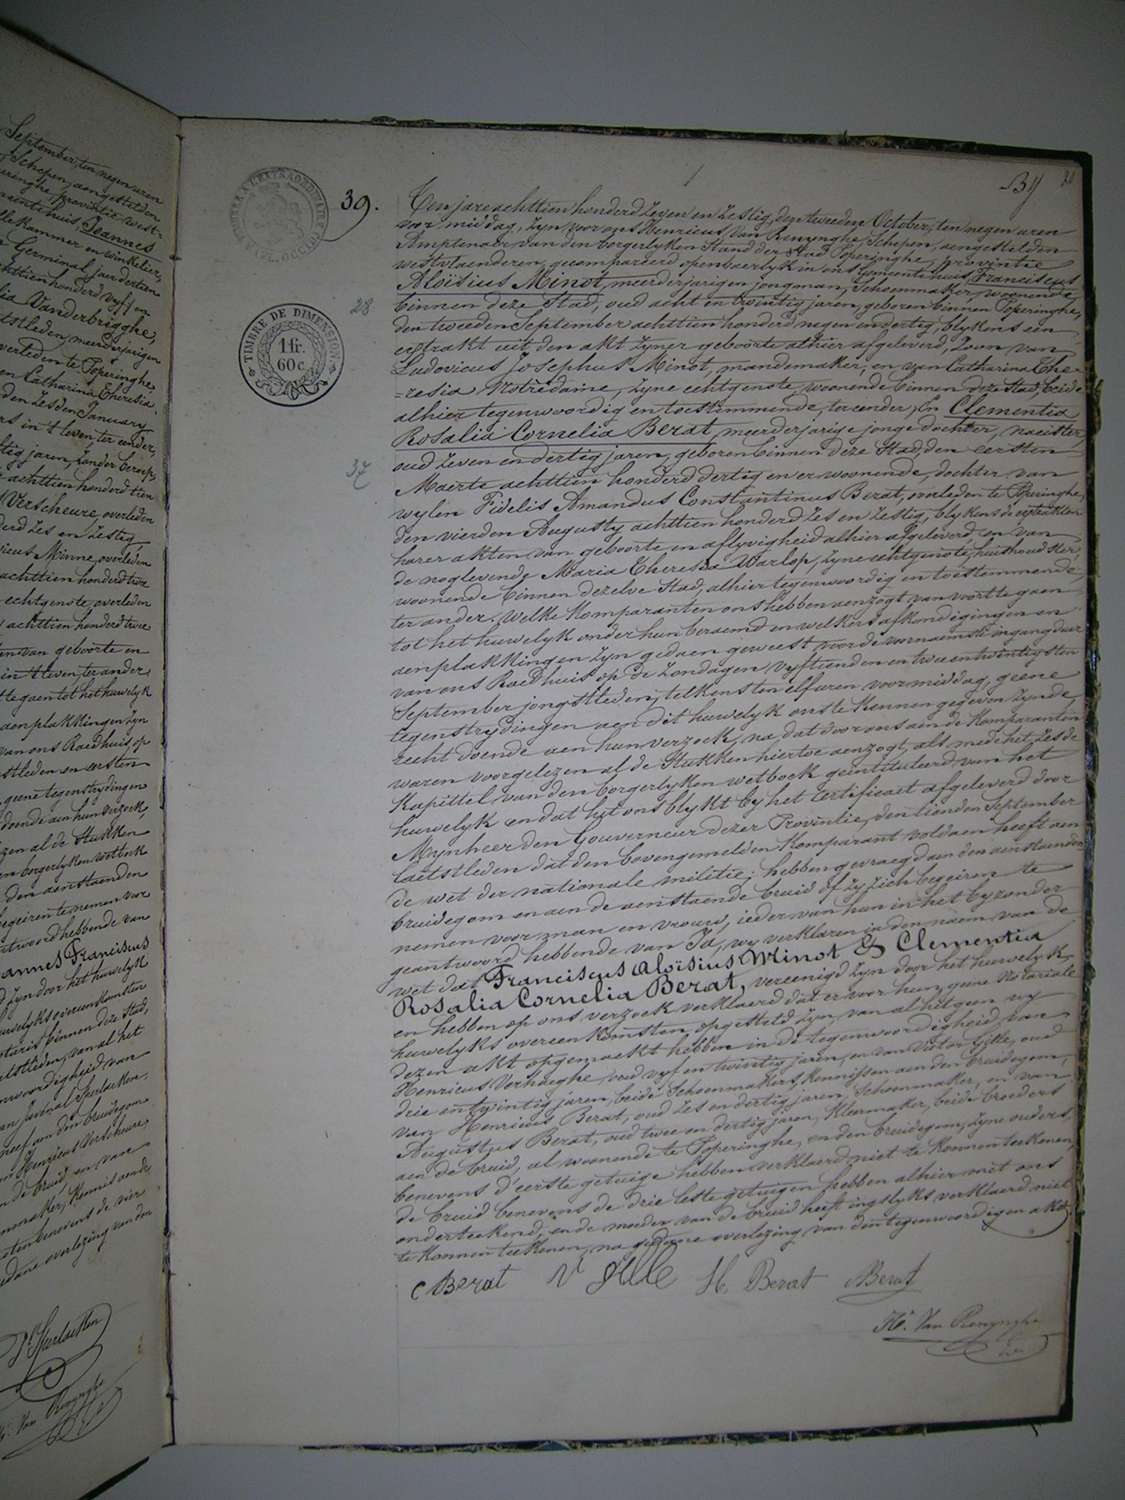 September, ten negen uren
Schepen, aengestelden
Poperinghe, provintie west-
meentehuis, Jeannes
kammer en winkelier,
Germinal, jaer dertien
achttien honderd vyf en
Vanderbrigghe,
meerderjarigen
verleden te Poperinghe
en Catharina Theresia
den zesden January
in 't leven, ter eender,
tig jaren, zonder beroep,
achttien honderd tien
Verscheure, overleden
derd zes en zestig
icus Minne, overleden
achttien honderd twee
echtgenote, overleden
achttien honderd twee
van geboorte en
in 't leven, ter ander
te gaen tot het huwelyk
aenplakkingen zyn
van ons Raedhuis op
stleden en eersten
geene tegenstrydingen
doende aen hun verzoek,
zen al de stukken
en borgerlyken wetboek
den aenstaenden
begeiren te nemen voor
antwoord hebbende van
annes Franciscus
zyn door het huwelyk
huwelyks overeenkomsten
taris binnen deze Stad,
tstleden, van al het
enwoordigheid van
kennis aende
eten benevens de vier
edane overlezing van den
H.r Van Renynghe
39.
28
37
TIMBRE DE DIMENSION
1 fr.
60 c.
39
Ten jare achttien honderd zeven en zestig, den tweeden October, ten negen uren
voor middag, zyn voor ons Henricus Van Renynghe Schepen, aengestelden
Amptenaer van den borgerlyken Stand der Stad Poperinghe, provintie
westvlaenderen, gecompareerd openbaerlyk in ons Gemeentehuis, Franciscus
Aloïsius Minot, meerderjarigen jongman, Schoenmaker, woonende
binnen deze Stad, oud acht en twintig jaren, geboren binnen Poperinghe,
den tweeden September achttien honderd negen en dertig, blykens een
extrakt uit den akt zyner geboorte alhier afgeleverd, Zoon van
Ludovicus Josephus Minot, mandemaker, en van Catharina The-
=resia Notredame, zyne echtgenote, woonende binnen deze Stad, beide
alhier tegenwoordig en toestemmende, ter eender, En Clementia
Rosalia Cornelia Berat, meerderjarige jonge dochter, naeister,
oud zeven en dertig jaren, geboren binnen deze Stad, den eersten
Maerte achttien honderd dertig en er woonende, dochter van
wylen Fidelis Amandus Constantinus Berat, overleden te Poperinghe,
den vierden Augusty achttien honderd zes en zestig, blykens de extrakten
harer akten van geboorte en aflyvigheid alhier afgeleverd, en van
de nog levende Maria Theresia Warlop, zyne echtgenote, huishoudster,
woonende binnen dezelve Stad, alhier tegenwoordig en toestemmende,
ter ander. Welke komparanten ons hebben aenzogt van voort te gaen
tot het huwelyk onder hun beraemd en welkers afkondigingen en
aenplakkingen zyn gedaen geweest voor de voornaemste ingangdeur
van ons Raedhuis op de Zondagen vyftienden en twee en twintigsten
September jongstleden, telkens ten elf uren voormiddag, geene
tegenstrydingen aen dit huwelyk ons te kennen gegeven zynde,
recht doende aen hun verzoek, na dat door ons aen de komparanten
waren voorgelezen al de Stukken hiertoe aenzogt, als mede het zesde
kapittel van den borgerlyken wetboek geintituleerd van het
huwelyk en dat het ons blykt by het certificaet afgeleverd door
Mynheer den Gouverneur dezer Provintie, den tienden September
laetstleden dat den bovengemelden komparant voldaen heeft aen
de wet der nationale militie; hebben gevraegd aen den aenstaenden
bruidegom en aen de aenstaende bruid of zy zich begeiren te
nemen voor man en vrouw, ieder van hun in het byzonder
geantwoord hebbende van Ja, wy verklaren in den naem van de
wet dat Franciscus Aloïsius Minot & Clementia
Rosalia Cornelia Berat, vereenigd zyn door het huwelyk,
en hebben op ons verzoek verklaerd dat er voor hun geene Notariale
huwelyks overeenkomsten opgesteld zyn, van al hetgeen wy
dezen akt opgemaekt hebben in de tegenwoordigheid van
Henricus Verhaeghe, oud vyf en twintig jaren, en van Victor Gille, oud
drie en twintig jaren, beide Schoenmakers, kennissen aen den bruidegom,
van Henricus Berat, oud zes en dertig jaren, Schoenmaker, en van
Augustus Berat, oud twee en dertig jaren, kleermaker, beide broeders
aen de bruid, al woonende te Poperinghe, en den bruidegom, zyne ouders,
benevens d'eerste getuige hebben verklaerd niet te konnen teekenen,
de bruid benevens de drie leste getuigen hebben alhier met ons
onderteekend, en de moeder van de bruid heeft ingelyks verklaerd niet
te konnen teekenen, na gedane overlezing van den tegenwoordigen akt.
C Berat V Gille H Berat Berat
H.r Van Renynghe